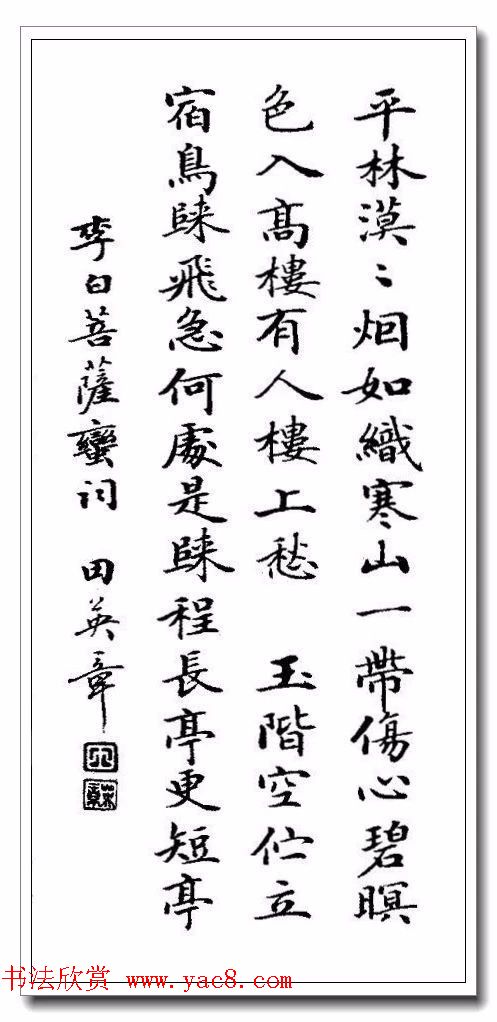 平林漠〻烟如織寒山一帶傷心碧暝
色入髙樓有人樓上愁 玉階空佇立
宿鳥歸飛急何處是歸程長亭更短亭
李白菩薩蠻詞 田英章
书法欣赏 www.yac8.com